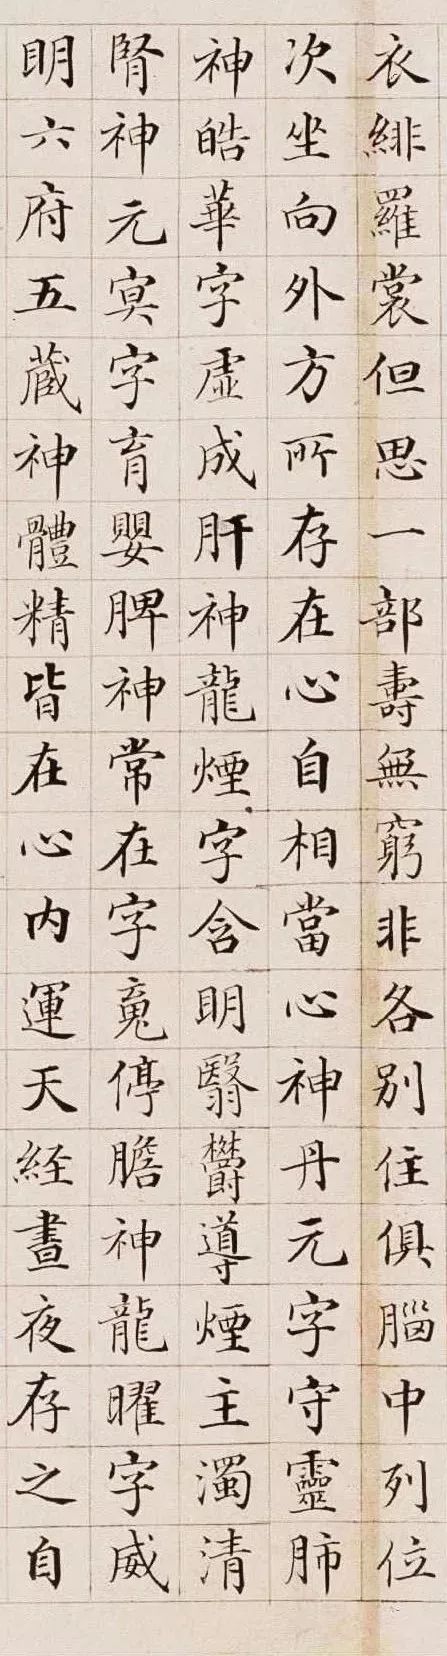 衣緋羅裳但思一部壽無窮非各別住俱腦中列位
次坐向外方所存在心自相當心神丹元字守靈肺
神皓華字虛成肝神龍煙字含眀翳鬱導煙主濁清
腎神元冥字育嬰脾神常在字魂停膽神龍曜字威
眀六府五藏神體精皆在心內運天経晝夜存之自